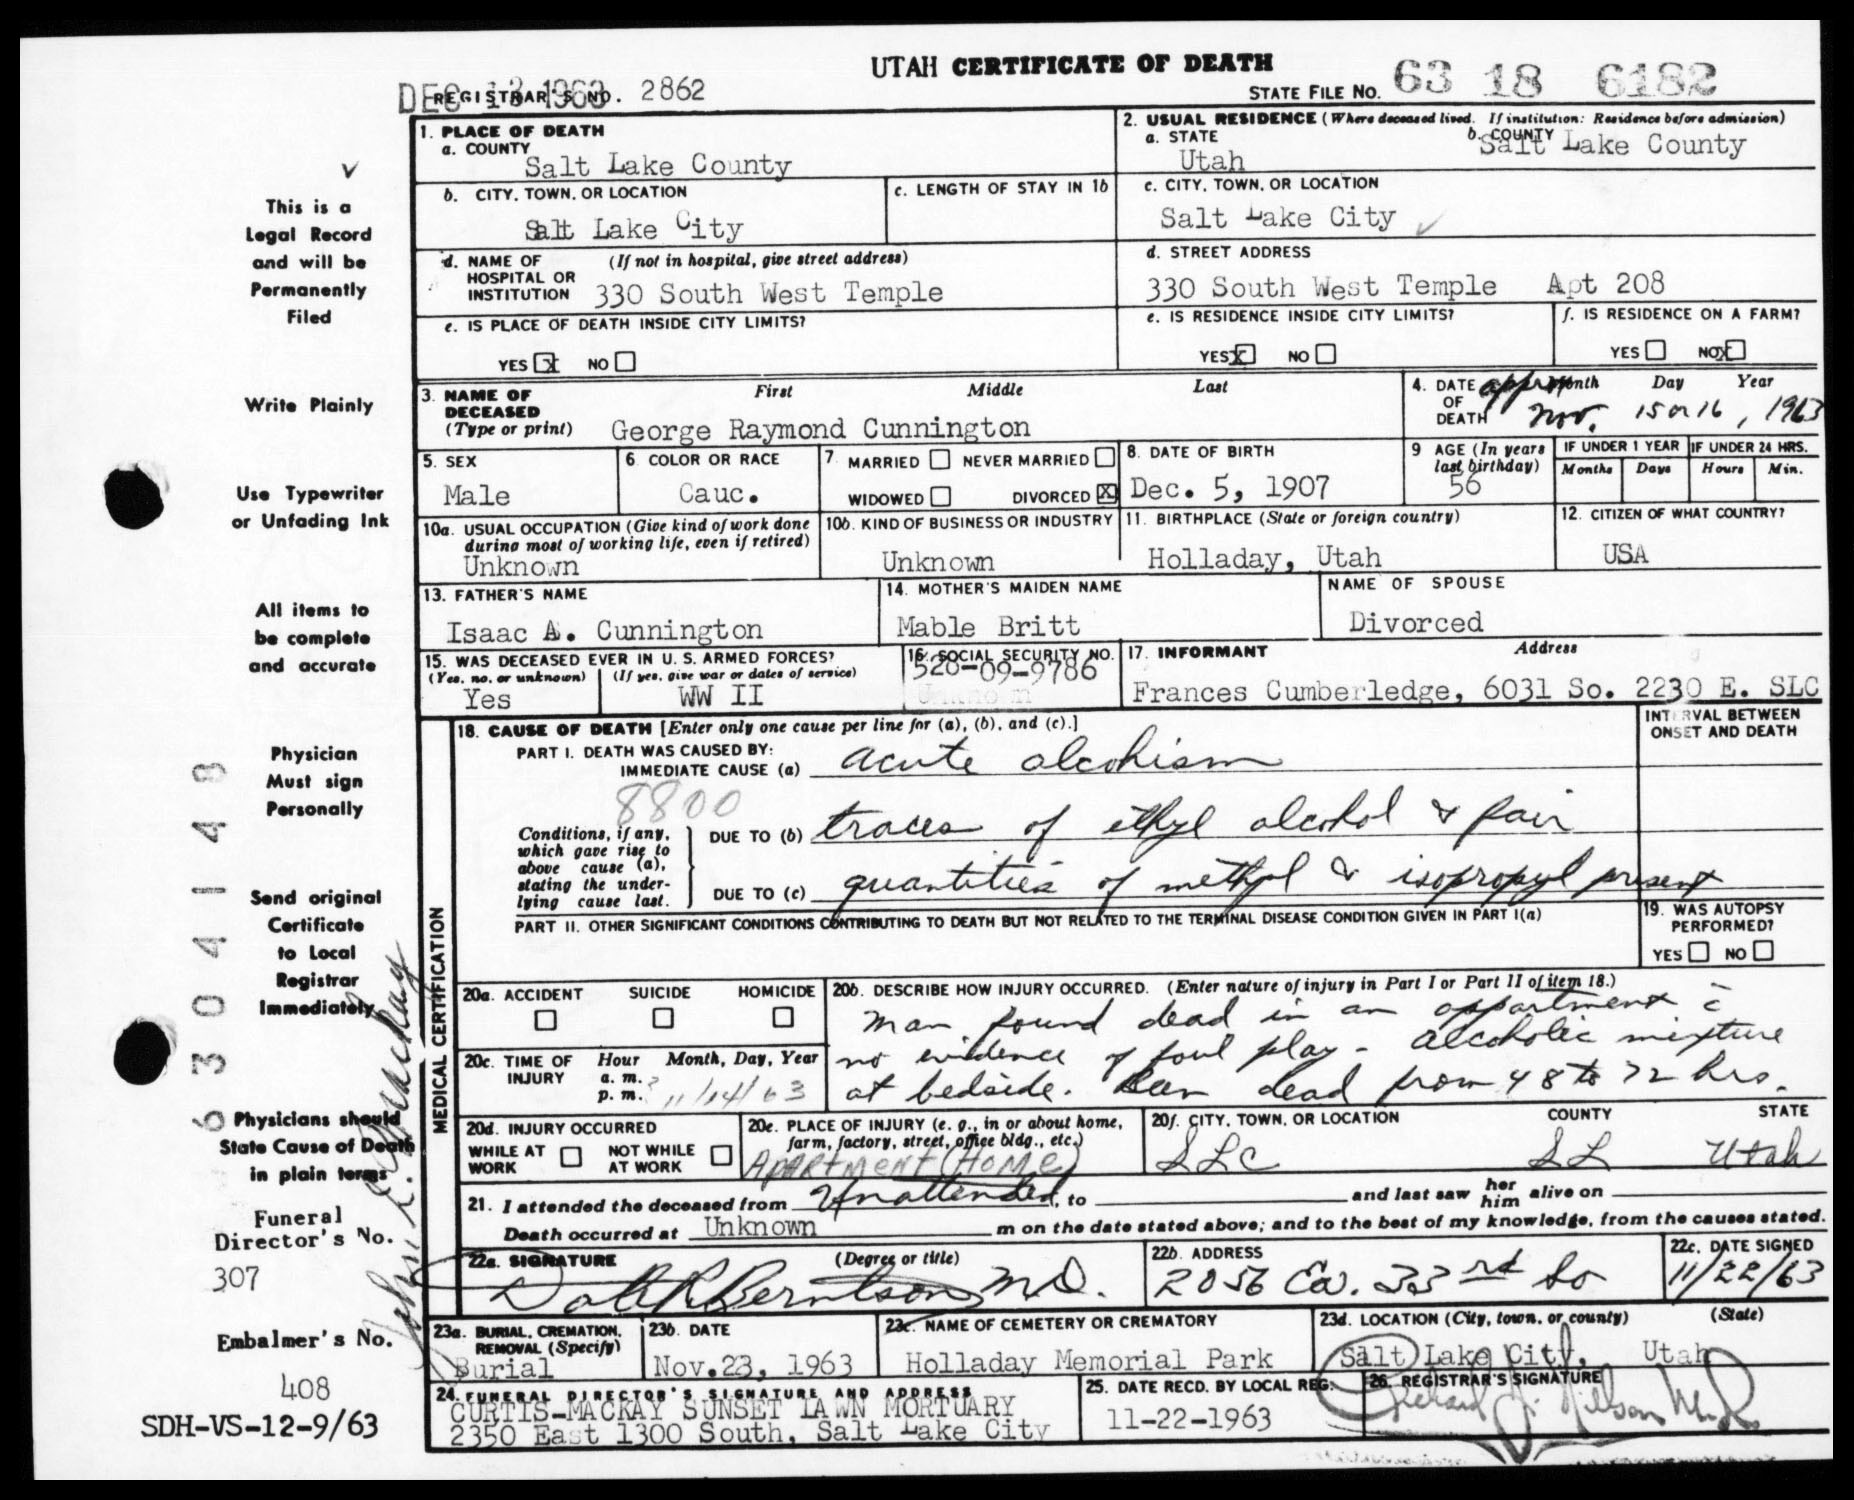 UTAH CERTIFICATE OF DEATH
DEC 13 1963
REGISTRAR'S NO. 2862
STATE FILE NO. 63 18 6182
1. PLACE OF DEATH
a. COUNTY
Salt Lake County
2. USUAL RESIDENCE (Where deceased lived. If institution: Residence before admission)
a. STATE
Utah
b. COUNTY
Salt Lake County
b. CITY, TOWN, OR LOCATION
Salt Lake City
c. LENGTH OF STAY IN 1b
c. CITY, TOWN, OR LOCATION
Salt Lake City
d. NAME OF HOSPITAL OR INSTITUTION (If not in hospital, give street address)
330 South West Temple
d. STREET ADDRESS
330 South West Temple Apt 208
e. IS PLACE OF DEATH INSIDE CITY LIMITS?
YES X NO
e. IS RESIDENCE INSIDE CITY LIMITS?
YES X NO
f. IS RESIDENCE ON A FARM?
YES NO X
3. NAME OF DECEASED (Type or print)
First Middle Last
George Raymond Cunnington
4. DATE OF DEATH
Month Day Year
approx
Nov. 15 or 16, 1963
5. SEX
Male
6. COLOR OR RACE
Cauc.
7. MARRIED NEVER MARRIED
WIDOWED DIVORCED X
8. DATE OF BIRTH
Dec. 5, 1907
9 AGE (In years last birthday)
56
IF UNDER 1 YEAR
Months Days
IF UNDER 24 HRS.
Hours Min.
10a. USUAL OCCUPATION (Give kind of work done during most of working life, even if retired)
Unknown
10b. KIND OF BUSINESS OR INDUSTRY
Unknown
11. BIRTHPLACE (State or foreign country)
Holladay, Utah
12. CITIZEN OF WHAT COUNTRY?
USA
13. FATHER'S NAME
Isaac A. Cunnington
14. MOTHER'S MAIDEN NAME
Mable Britt
NAME OF SPOUSE
Divorced
15. WAS DECEASED EVER IN U. S. ARMED FORCES?
(Yes, no, or unknown) (If yes, give war or dates of service)
Yes WW II
16. SOCIAL SECURITY NO.
528-09-9786
Unknown
17. INFORMANT Address
Frances Cumberledge, 6031 So. 2230 E. SLC
MEDICAL CERTIFICATION
18. CAUSE OF DEATH [Enter only one cause per line for (a), (b), and (c).]
INTERVAL BETWEEN ONSET AND DEATH
PART I. DEATH WAS CAUSED BY:
IMMEDIATE CAUSE (a) acute alcohism
8800
Conditions, if any, which gave rise to above cause (a), stating the underlying cause last.
DUE TO (b) traces of ethyl alcohol & fair
DUE TO (c) quantities of methyl & isopropyl present
PART II. OTHER SIGNIFICANT CONDITIONS CONTRIBUTING TO DEATH BUT NOT RELATED TO THE TERMINAL DISEASE CONDITION GIVEN IN PART I(a)
19. WAS AUTOPSY PERFORMED?
YES NO
20a. ACCIDENT SUICIDE HOMICIDE
20b. DESCRIBE HOW INJURY OCCURRED. (Enter nature of injury in Part I or Part II of item 18.)
Man found dead in an appartment c̄
no evidence of foul play - alcoholic mixture
at bedside. Been dead from 48 to 72 hrs.
20c. TIME OF INJURY
Hour Month, Day, Year
a. m. ?
p. m. 11/14/63
20d. INJURY OCCURRED
WHILE AT WORK NOT WHILE AT WORK
20e. PLACE OF INJURY (e. g., in or about home, farm, factory, street, office bldg., etc.)
APARTMENT (HOME)
20f. CITY, TOWN, OR LOCATION COUNTY STATE
SLC SL Utah
21. I attended the deceased from Unattended, to and last saw her him alive on
Death occurred at Unknown m on the date stated above; and to the best of my knowledge, from the causes stated.
22a. SIGNATURE (Degree or title)
Berntson M.D.
22b. ADDRESS
2056 Ea. 33rd So
22c. DATE SIGNED
11/22/63
23a. BURIAL, CREMATION, REMOVAL (Specify)
Burial
23b. DATE
Nov.23, 1963
23c. NAME OF CEMETERY OR CREMATORY
Holladay Memorial Park
23d. LOCATION (City, town, or county) (State)
Salt Lake City, Utah
24. FUNERAL DIRECTOR'S SIGNATURE AND ADDRESS
CURTIS-MACKAY SUNSET LAWN MORTUARY
2350 East 1300 South, Salt Lake City
25. DATE RECD. BY LOCAL REG.
11-22-1963
26. REGISTRAR'S SIGNATURE
This is a
Legal Record
and will be
Permanently
Filed
Write Plainly
Use Typewriter
or Unfading Ink
All items to
be complete
and accurate
Physician
Must sign
Personally
Send original
Certificate
to Local
Registrar
Immediately
Physicians should
State Cause of Death
in plain terms
Funeral
Director's No.
307
Embalmer's No.
408
SDH-VS-12-9/63
63041148